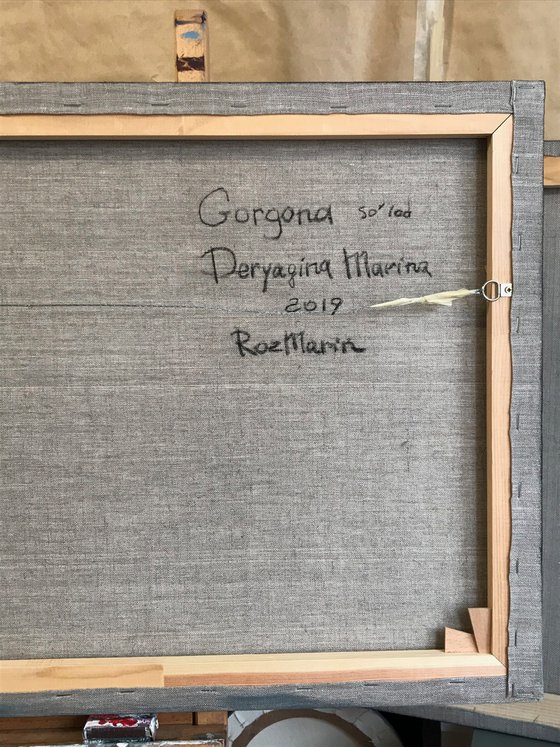 Gorgona 80*100
Deryagina Marina
2019
RozMarin